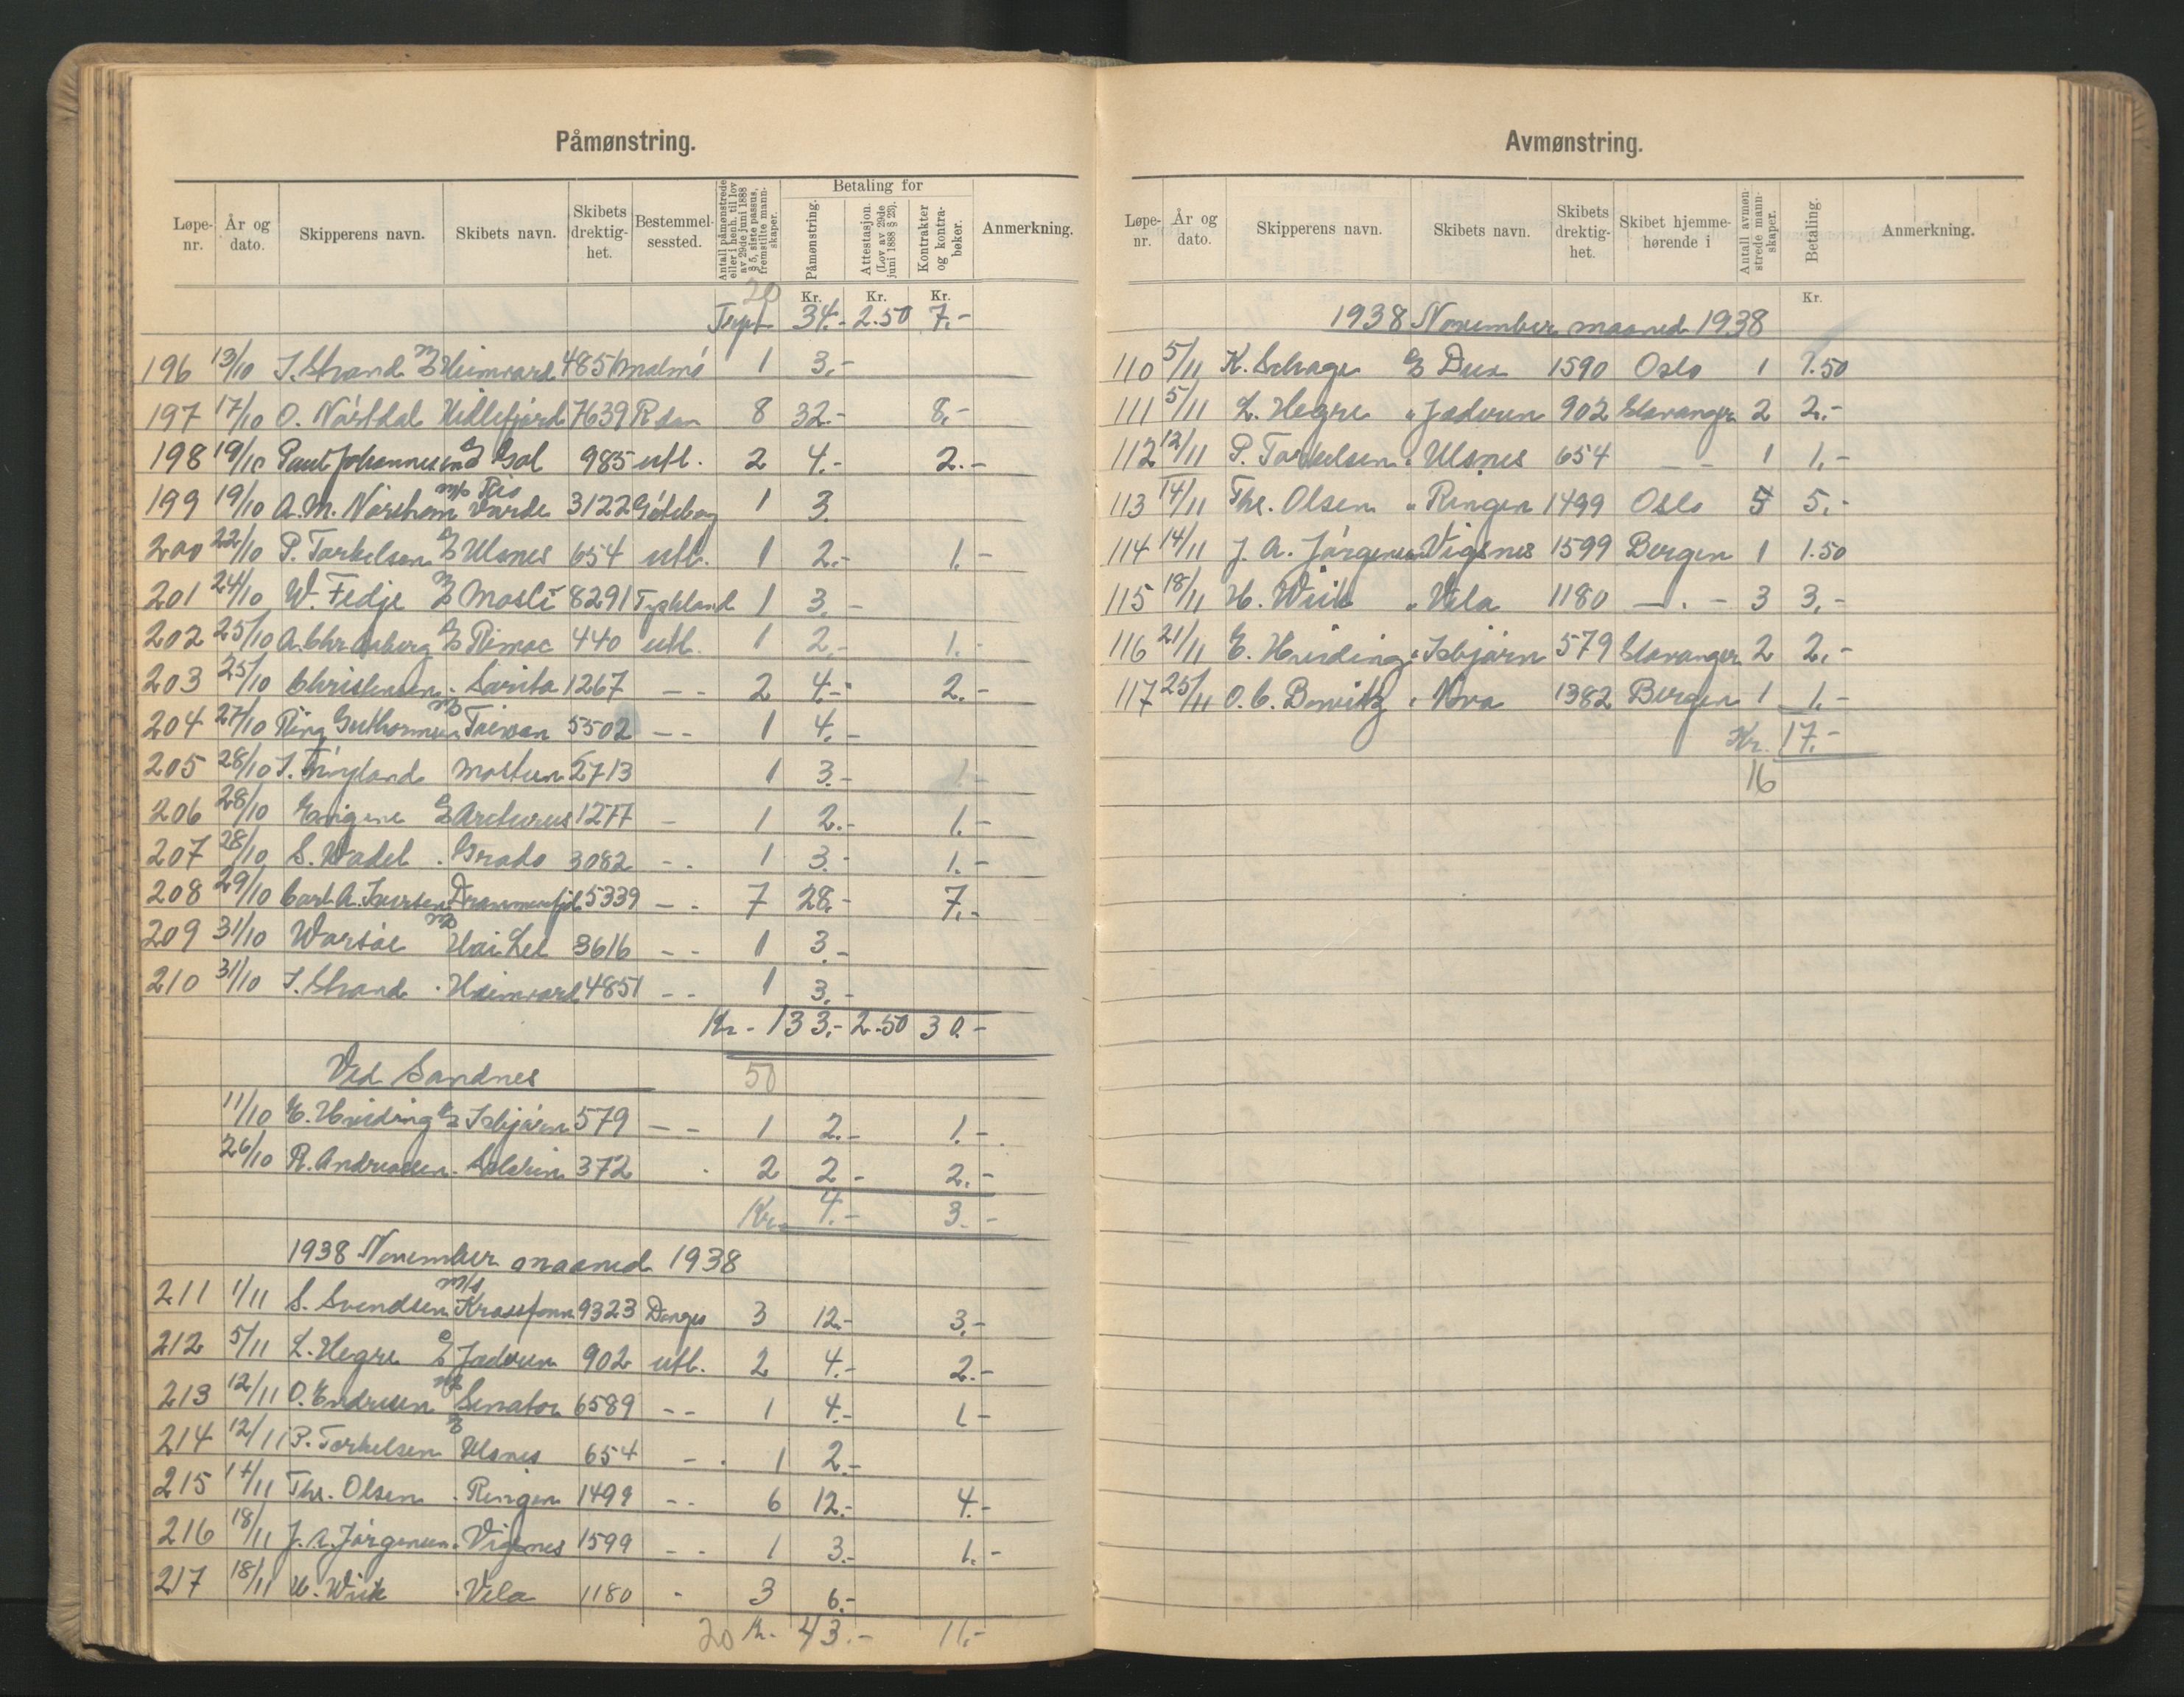 Påmønstring.
Løpe-nr. År og dato. Skipperens navn. Skibets navn. Skibets drektig-het. Bestemmel-sessted. Antall påmønstrede eller i henh. til lov av 29de juni 1888 § 5, siste passus, fremstilte mann-skaper. Betaling for Påmønstring. Attestasjon (Lov av 29de juni 1888 § 23). Kontrakter og kontra-bøker. Anmerkning.
20 Kr. Kr. Kr.
Trpt 34.- 2.50 7.-
196 13/10 J. Strand M/S Heimvard 4851 Malmö 1 3.-
197 17/10 O. Nörstdal Hillefjord 7639 R dam 8 32.- 8.-
198 19/10 Paul Johannesen D/S Gol 985 utl. 2 4.- 2.-
199 19/10 A. M. Nörstrøm M/S Ris Varde 3122 Göteborg 1 3.
200 22/10 P. Torkelsen D/S Ulsnes 654 utl. 1 2.- 1.-
201 24/10 W. Fedje M/S Mosli 8291 Tyskland 1 3.-
202 25/10 A. Chr. Asberg D/S Rimac 440 utl. 1 2.- 1.-
203 25/10 Christensen . Sarita 1267 - - 2 4.- 2.-
204 27/10 Ring Guthormsen M/S Taiwan 5502 - - 1 4.-
205 28/10 J. Tröyland Mostun 2713 1 3.- 1.-
206 28/10 Gavigne D/S Arcturus 1277 - 1 2.- 1.-
207 28/10 S. Wadel . Grado 3082 - - 1 3.- 1.-
208 29/10 Carl A. Iversen Drammensfjd 5339 - - 7 28.- 7.-
209 31/10 Warsöe M/S Hai Lee 3616 - - 1 3.-
210 31/10 J. Strand . Heimvard 4851 - - 1 3.-
Kr. - 133.- 2.50 30.-
Ved Sandnes 50
11/10 E. Hveding D/S Isbjörn 579 - - 1 2.- 1.-
26/10 R. Andreassen . Solskin 372 . 2 2.- 2.-
Kr. 4.- 3.-
1938 November maaned 1938
211 1/11 S. Svendsen M/S Krossfonn 9323 Danges 3 12.- 3.-
212 5/11 L. Hegre D/S Jadvren 902 utl. 2 4.- 2.-
213 12/11 O. Endresen M/S Senator 6589 - - 1 4.- 1.-
214 12/11 P. Torkelsen D/S Ulsnes 654 - . 1 2.-
215 14/11 Thr. Olsen . Ringen 1499 - - 6 12.- 4.-
216 18/11 J. A. Jörgensen . Vigsnes 1599 - - 1 3.- 1.-
217 18/11 H. Wiik . Vela 1180 - 3 6.-
20 Kr. 43.- 11.-
Avmønstring.
Løpe-nr. År og dato. Skipperens navn. Skibets navn. Skibets drektig-het. Skibet hjemme-hørende i Antall avmøn-strede mann-skaper. Betaling. Anmerkning.
Kr.
1938 November maaned 1938
110 5/11 K. Schage D/S Dux 1590 Oslo 1 1.50
111 5/11 L. Hegre " Jadvren 902 Stavanger 2 2.-
112 12/11 P. Torkelsen " Ulsnes 654 - - 1 1.-
113 14/11 Thr. Olsen " Ringen 1499 Oslo 5 5.-
114 14/11 J. A. Jörgensen Vigsnes 1599 Bergen 1 1.50
115 18/11 H. Wiik " Vela 1180 - . - 3 3.-
116 21/11 E. Hveding " Isbjörn 579 Stavanger 2 2.-
117 25/11 O. C. Borvik " Nova 1382 Bergen 1 1.-
Kr. 17.-
16